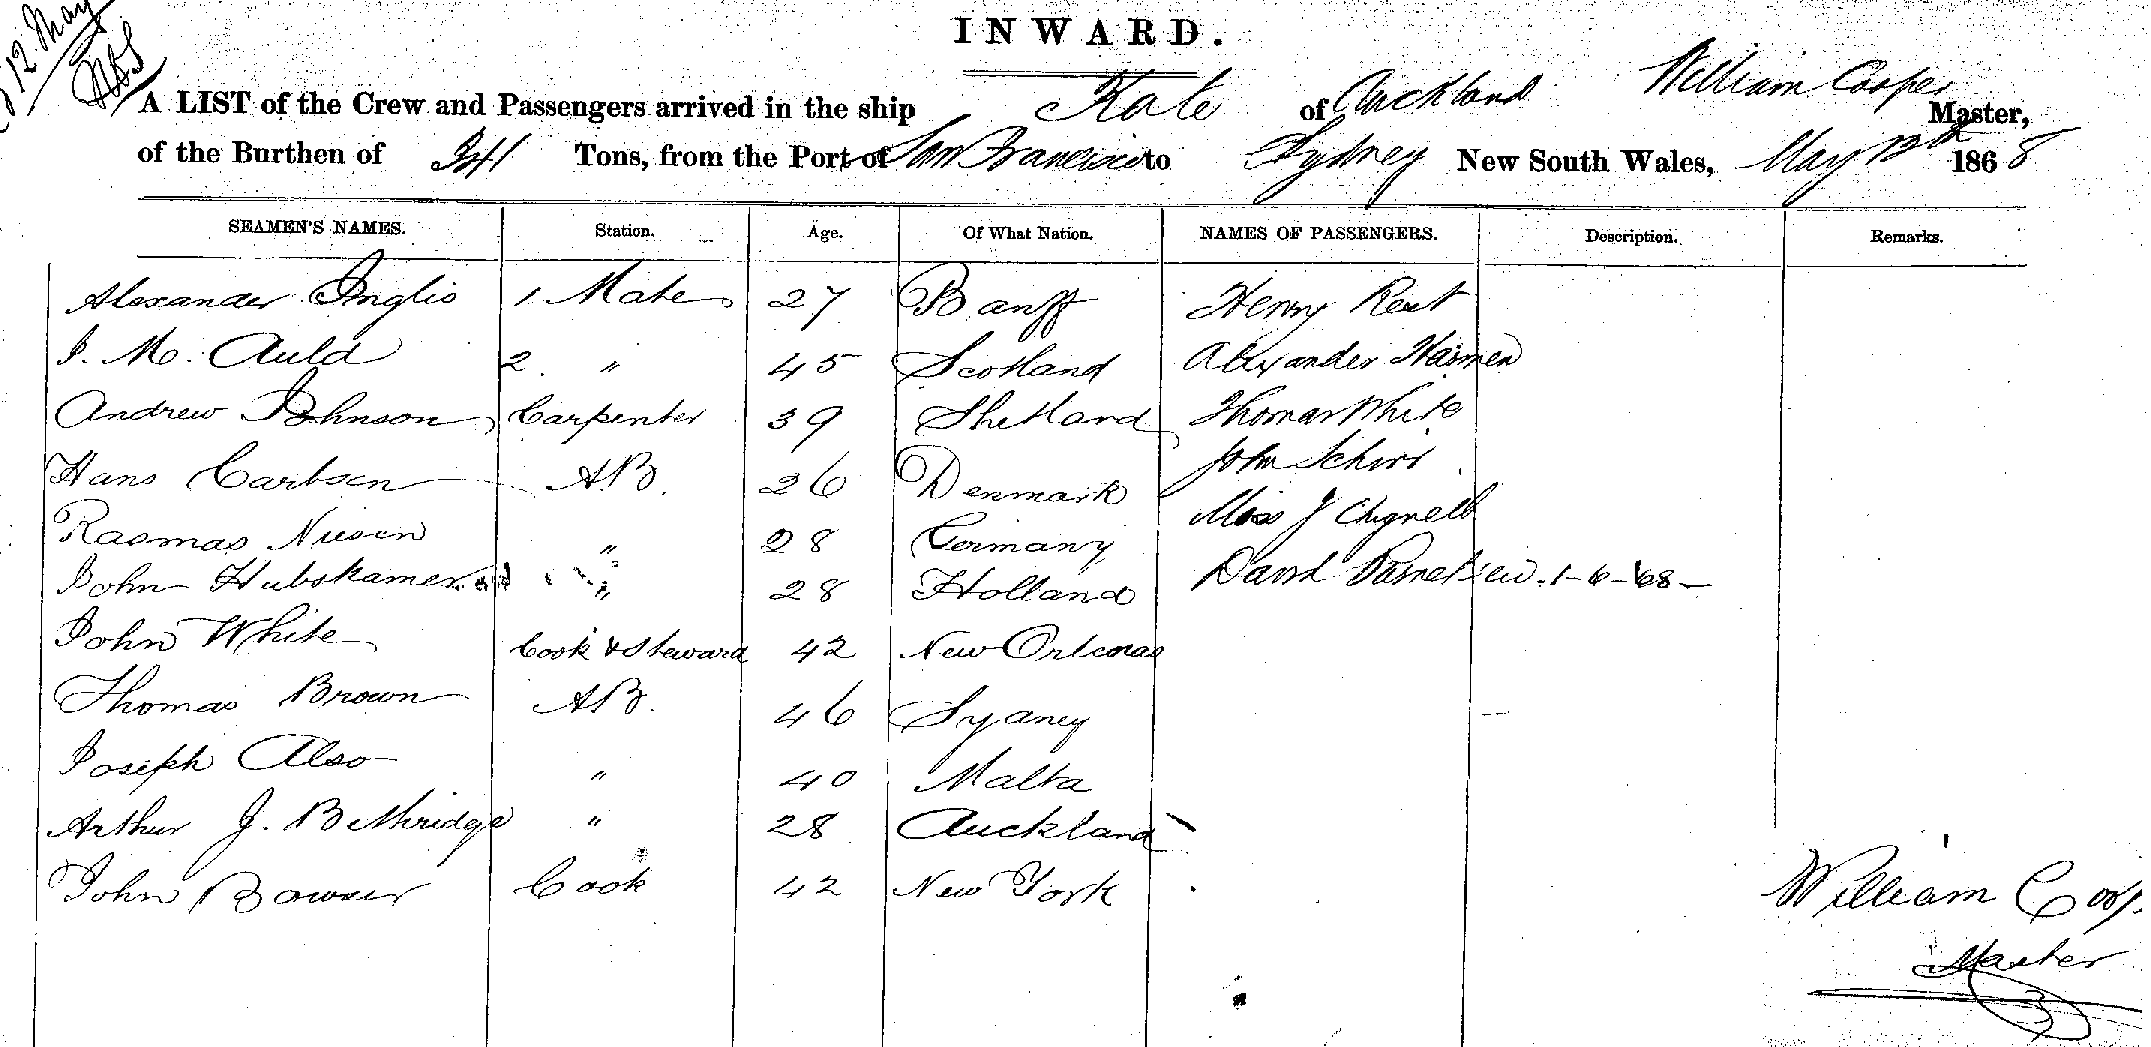 12 May
INWARD.
A LIST of the Crew and Passengers arrived in the ship Kate of Auckland William Cooper Master,
of the Burthen of Tons, from the Port of San Francisco to Sydney New South Wales, May 12th 1868
SEAMEN'S NAMES. Station. Age. Of What Nation. NAMES OF PASSENGERS. Description. Remarks.
Alexander Inglis 1 Mate 27 Banff Henry Rent
J. Mc. Auld 2. " 45 Scotland Alexander
Andrew Johnson Carpenter 39 Shetland Thomas White
Hans Carlsen AB. 26 Denmark John
Rasmas " 28 Germany Miss J Chignell
John Hubskamer " 28 Holland David 1-6-68-
John White Cook & Steward 42 New Orleans
Thomas Brown AB. 46 Sydney
Joseph Also " 40 Malta
Arthur J. Bethridge " 28 Auckland
John Bowser Cook 42 New York
William Coop
Master